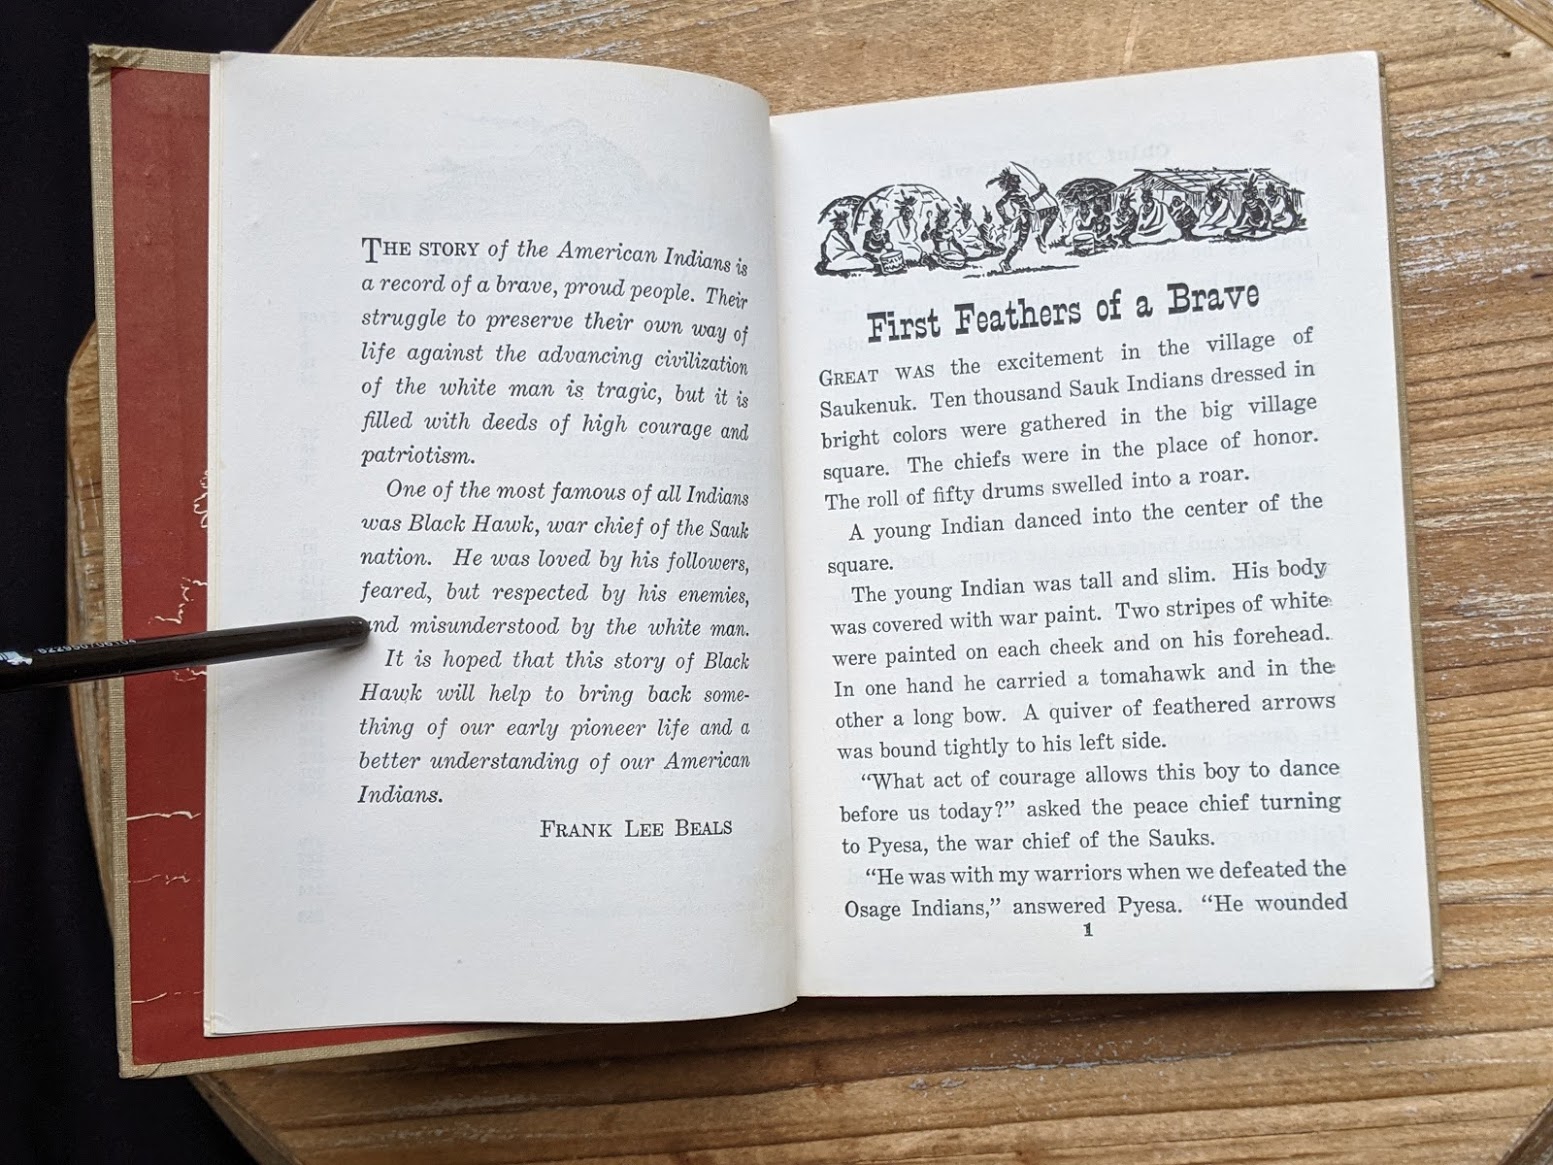 THE STORY of the American Indians is
a record of a brave, proud people. Their
struggle to preserve their own way of
life against the advancing civilization
of the white man is tragic, but it is
filled with deeds of high courage and
patriotism.
One of the most famous of all Indians
was Black Hawk, war chief of the Sauk
nation. He was loved by his followers,
feared, but respected by his enemies,
and misunderstood by the white man.
It is hoped that this story of Black
Hawk will help to bring back some-
thing of our early pioneer life and a
better understanding of our American
Indians.
FRANK LEE BEALS
First Feathers of a Brave
GREAT WAS the excitement in the village of
Saukenuk. Ten thousand Sauk Indians dressed in
bright colors were gathered in the big village
square. The chiefs were in the place of honor.
The roll of fifty drums swelled into a roar.
A young Indian danced into the center of the
square.
The young Indian was tall and slim. His body
was covered with war paint. Two stripes of white
were painted on each cheek and on his forehead.
In one hand he carried a tomahawk and in the
other a long bow. A quiver of feathered arrows
was bound tightly to his left side.
“What act of courage allows this boy to dance
before us today?” asked the peace chief turning
to Pyesa, the war chief of the Sauks.
“He was with my warriors when we defeated the
Osage Indians,” answered Pyesa. “He wounded
1